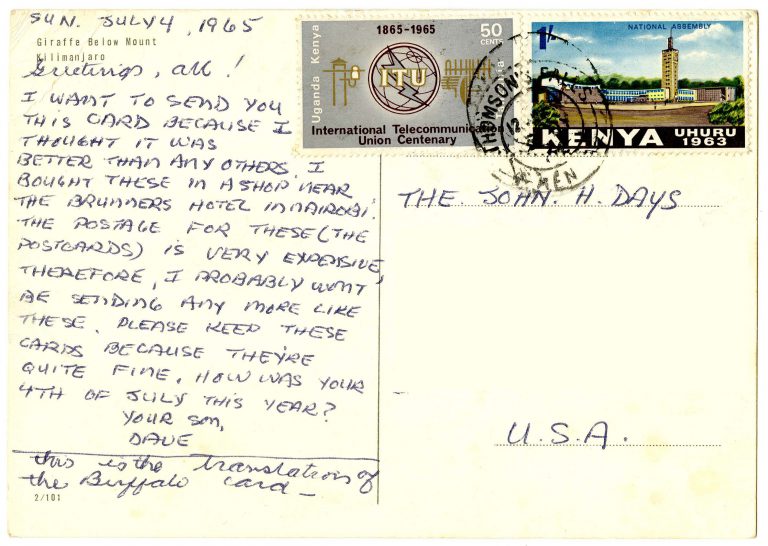 SUN. JULY 4, 1965
Giraffe Below Mount
Kilimanjaro
Greetings, all!
I WANT TO SEND YOU
THIS CARD BECAUSE I
THOUGHT IT WAS
BETTER THAN ANY OTHERS. I
BOUGHT THESE IN A SHOP NEAR
THE BRUNNERS HOTEL IN NAIROBI.
THE POSTAGE FOR THESE (THE
POSTCARDS) IS VERY EXPENSIVE
THEREFORE, I PROBABLY WON'T
BE SENDING ANY MORE LIKE
THESE. PLEASE KEEP THESE
CARDS BECAUSE THEY'RE
QUITE FINE. HOW WAS YOUR
4TH OF JULY THIS YEAR?
YOUR SON,
DAVE
this is the translation of
the Buffalo card —
2/101
1865-1965
50
CENTS
Uganda Kenya
ITU
International Telecommunication
Union Centenary
1/-
NATIONAL ASSEMBLY
KENYA UHURU
1963
THOMSON'S FALLS
THE JOHN. H. DAYS
U.S.A.